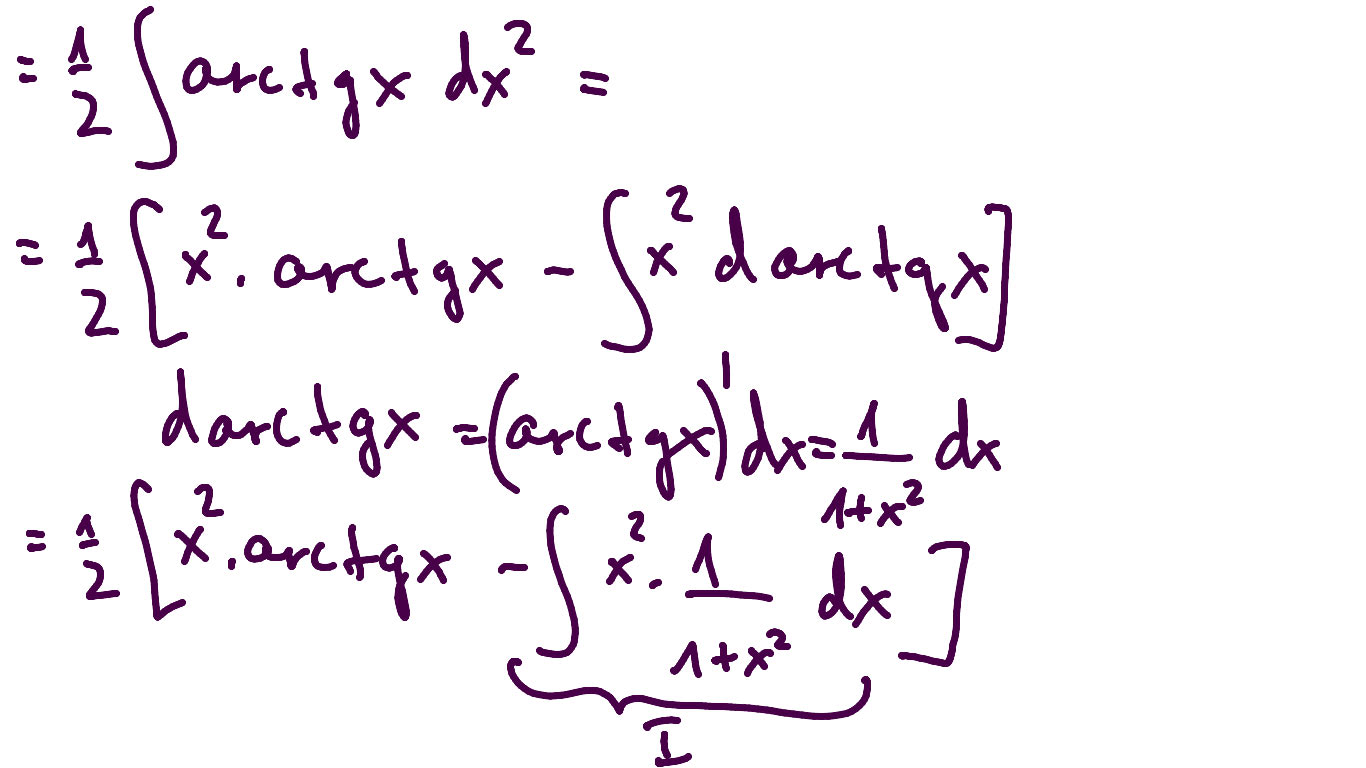 = 1/2 ∫ arctgx dx² =
= 1/2 [x² . arctgx - ∫ x² darctgx]
darctgx = (arctgx)' dx = 1/(1+x²) dx
= 1/2 [x² . arctgx - ∫ x² . 1/(1+x²) dx]
I